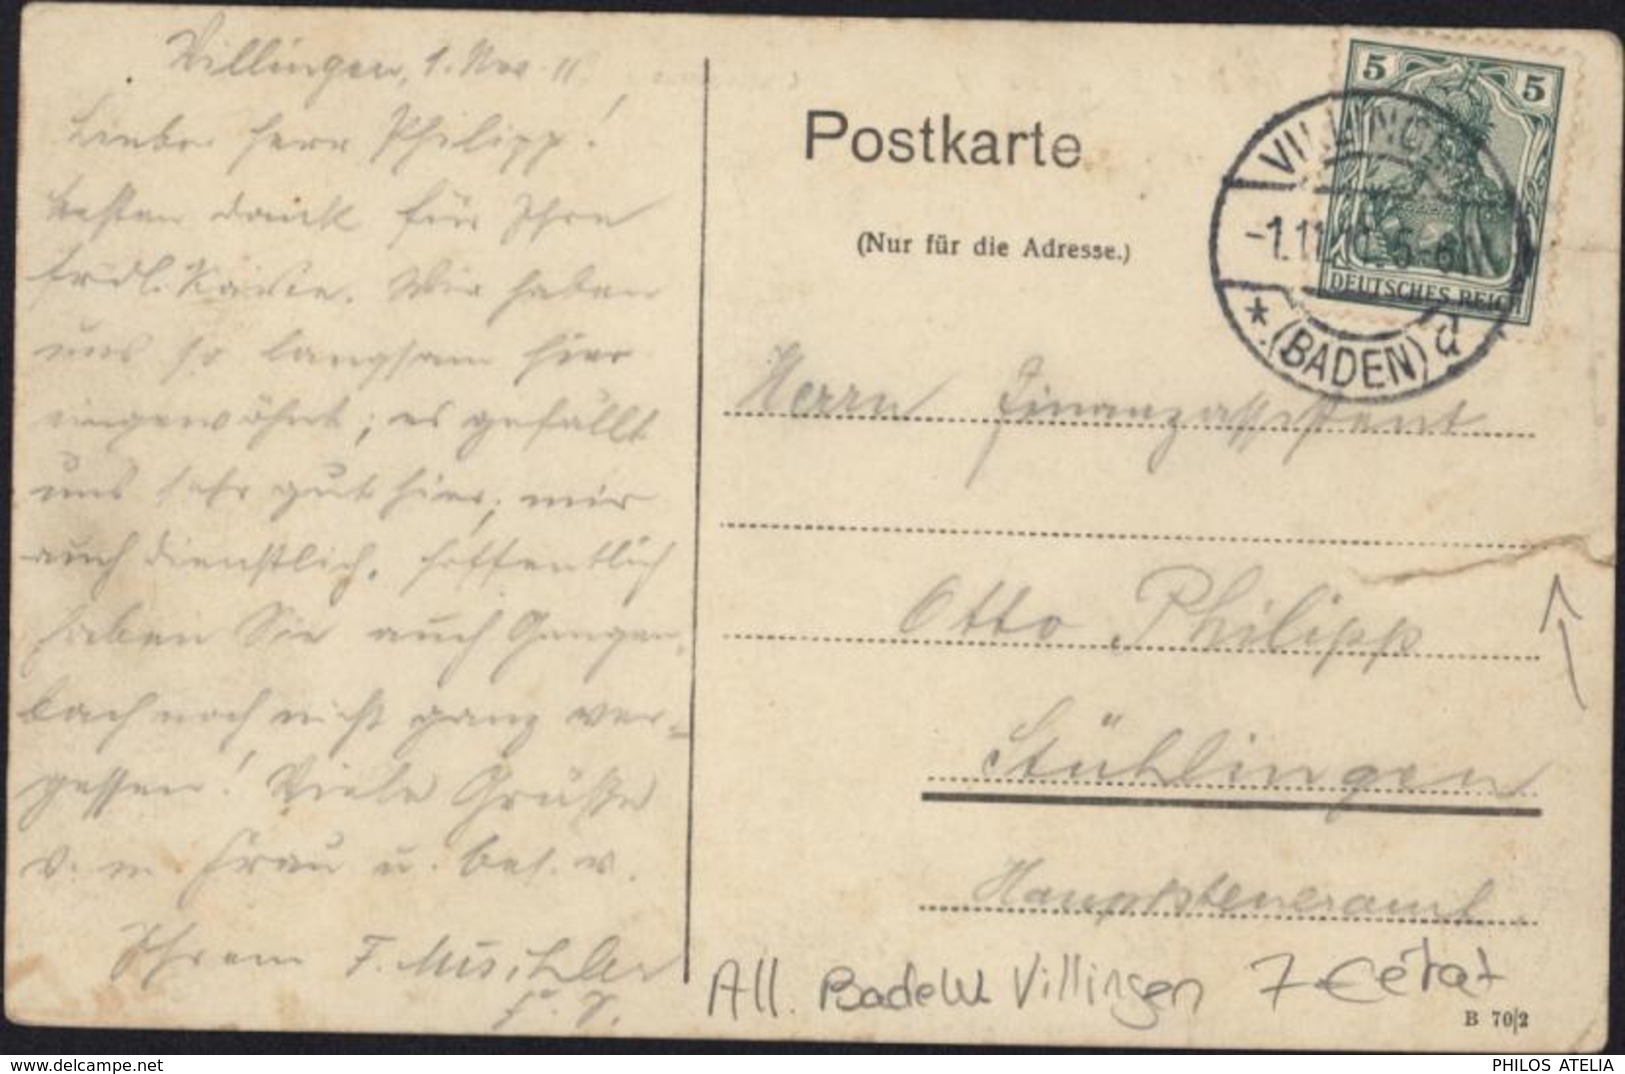 Villingen, 1. Nov. 11.
Lieber Herr Philipp!
besten Dank für Ihre
frdl. Karte. Wir haben
uns so langsam hier
eingewöhnt; es gefällt
uns sehr gut hier, mir
auch dienstlich. Hoffentlich
haben Sie auch Gengen-
bach noch nicht ganz ver-
gessen! Viele Grüße
v. m. Frau u. bes. v.
Ihrem F. Mischler
Postkarte
(Nur für die Adresse.)
5 5
DEUTSCHES REICH
VILLINGEN
-1.11.11. 5-6N
* (BADEN) d
Herrn Finanzassistent
Otto Philipp
Stühlingen
Hauptsteueramt.
All. Villingen 7 € état
B 70/2
delcampe.net
PHILOS ATELIA